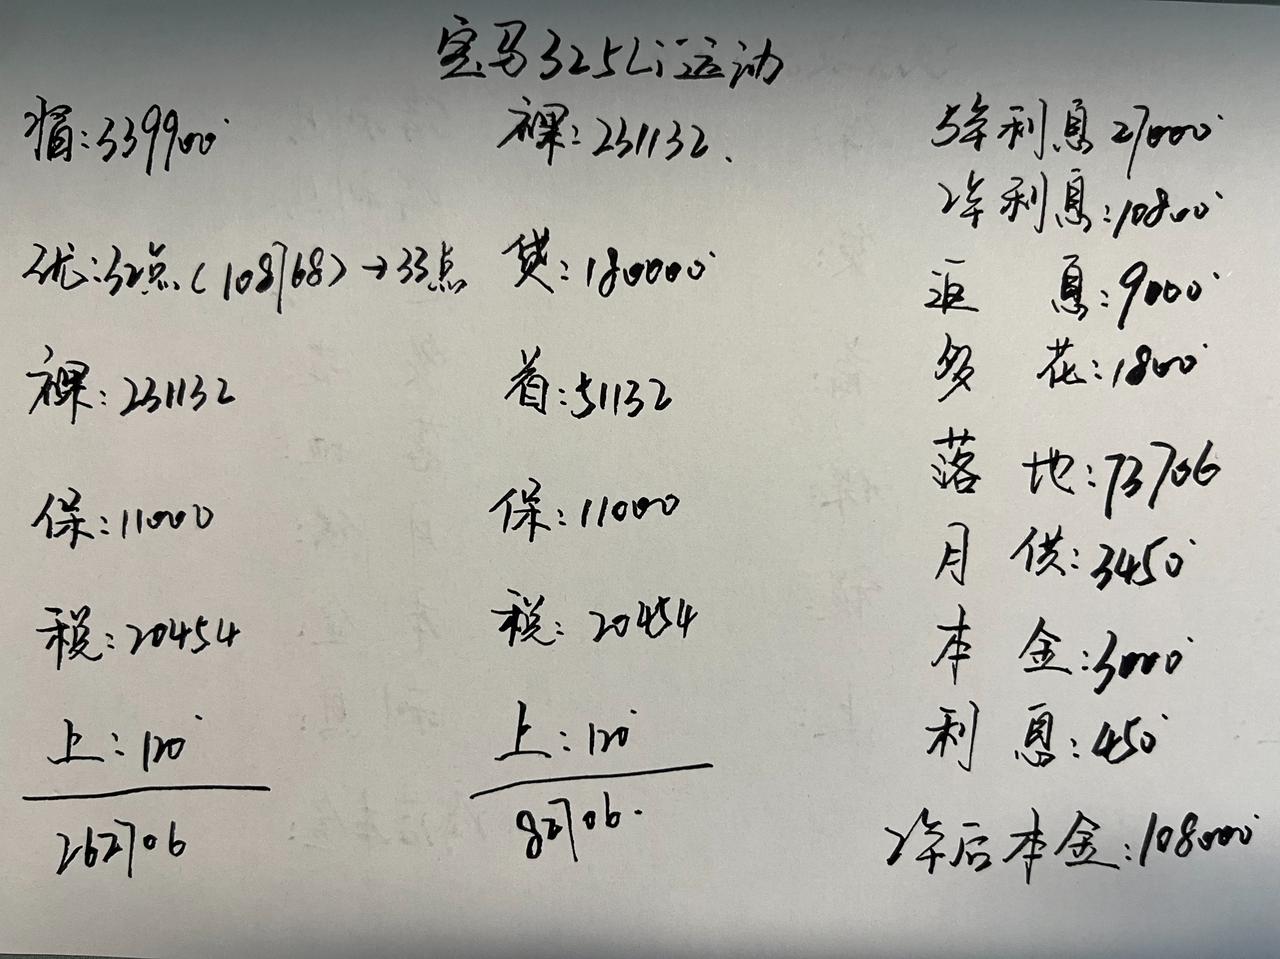 宝马325Li运动
指:339900
优:32点(108768)→33点
裸:231132
保:11000
税:20454
上:120
262706
裸:231132.
贷:180000
首:51132
保:11000
税:20454
上:120
82706.
5年利息27000
2年利息:10800
返息:9000
多花:1800
落地:73706
月供:3450
本金:3000
利息:450
2年后本金:108000